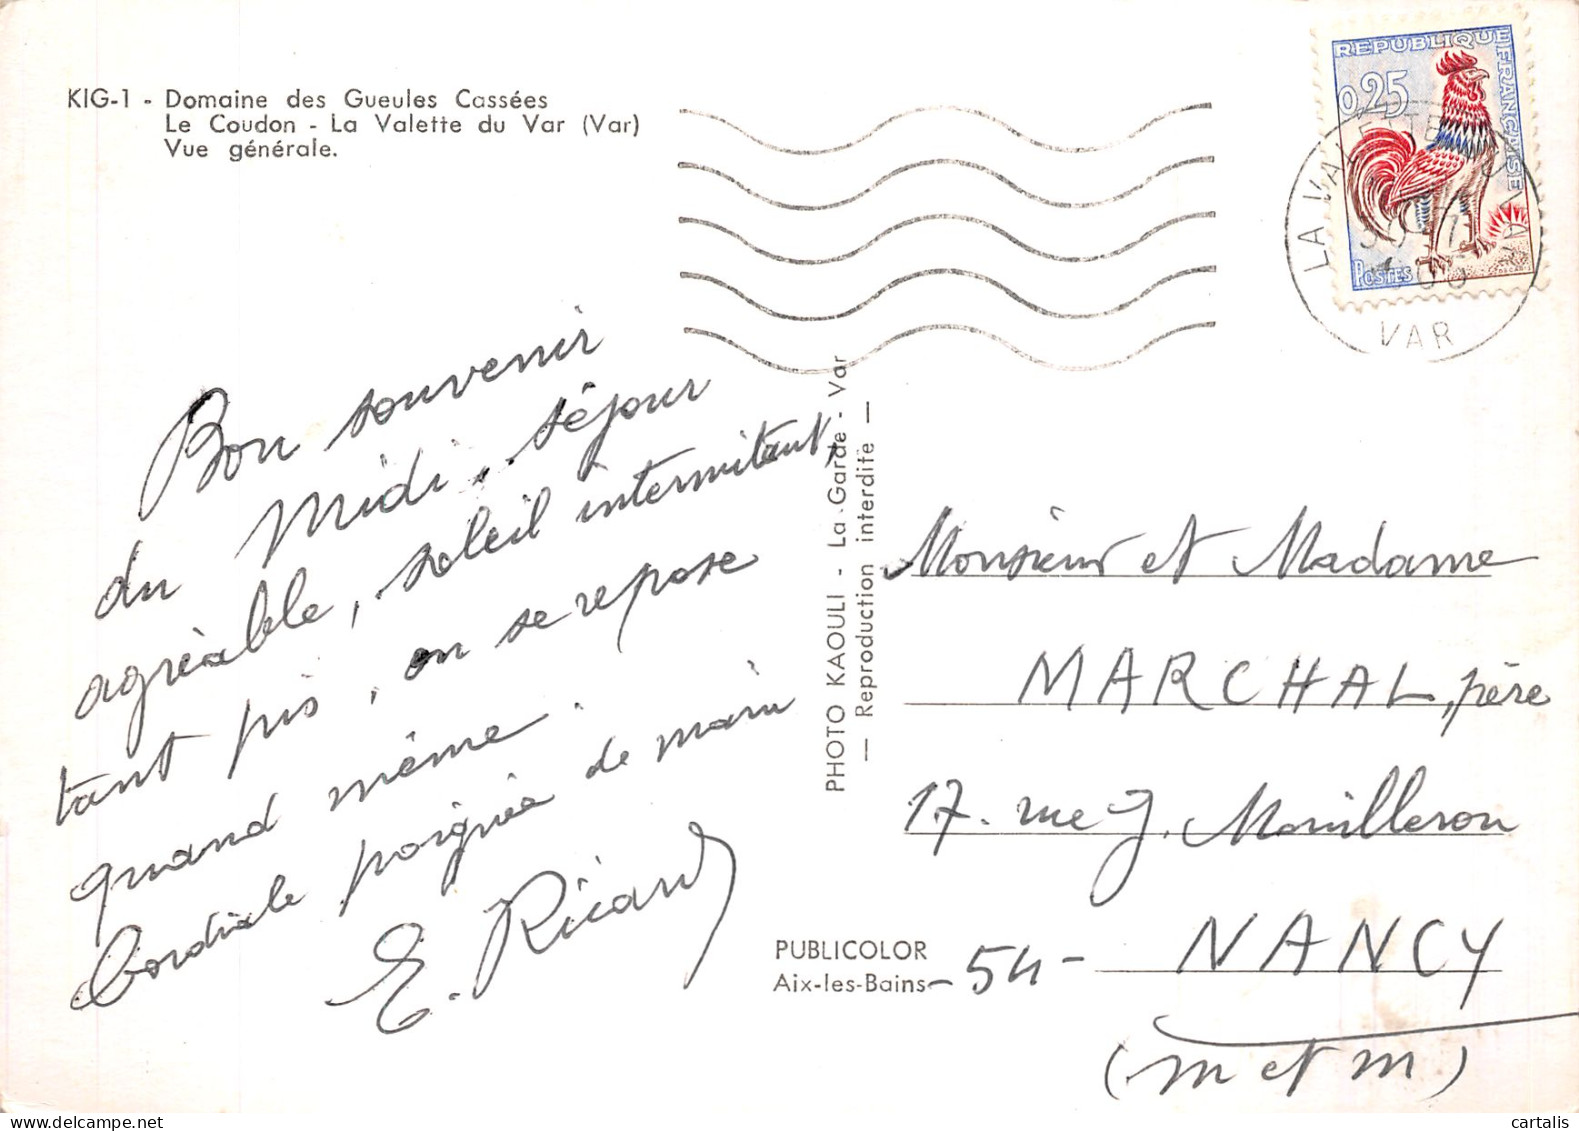 KIG-1 - Domaine des Gueules Cassées
Le Coudon - La Valette du Var (Var)
Vue générale.
REPUBLIQUE FRANÇAISE
0,25
POSTES
LA VALETTE DU VAR
VAR
Bon souvenir
du Midi. séjour
agréable, soleil intermitant,
tant pis, on se repose
quand même.
Cordiale poignée de main
E. Ricard
PHOTO KAOULI - La Garde - Var
— Reproduction interdite —
PUBLICOLOR
Aix-les-Bains
Monsieur et Madame
MARCHAL, père
17. rue J. Mouilleron
-54- NANCY
(M et M)
cartalis
www.delcampe.net